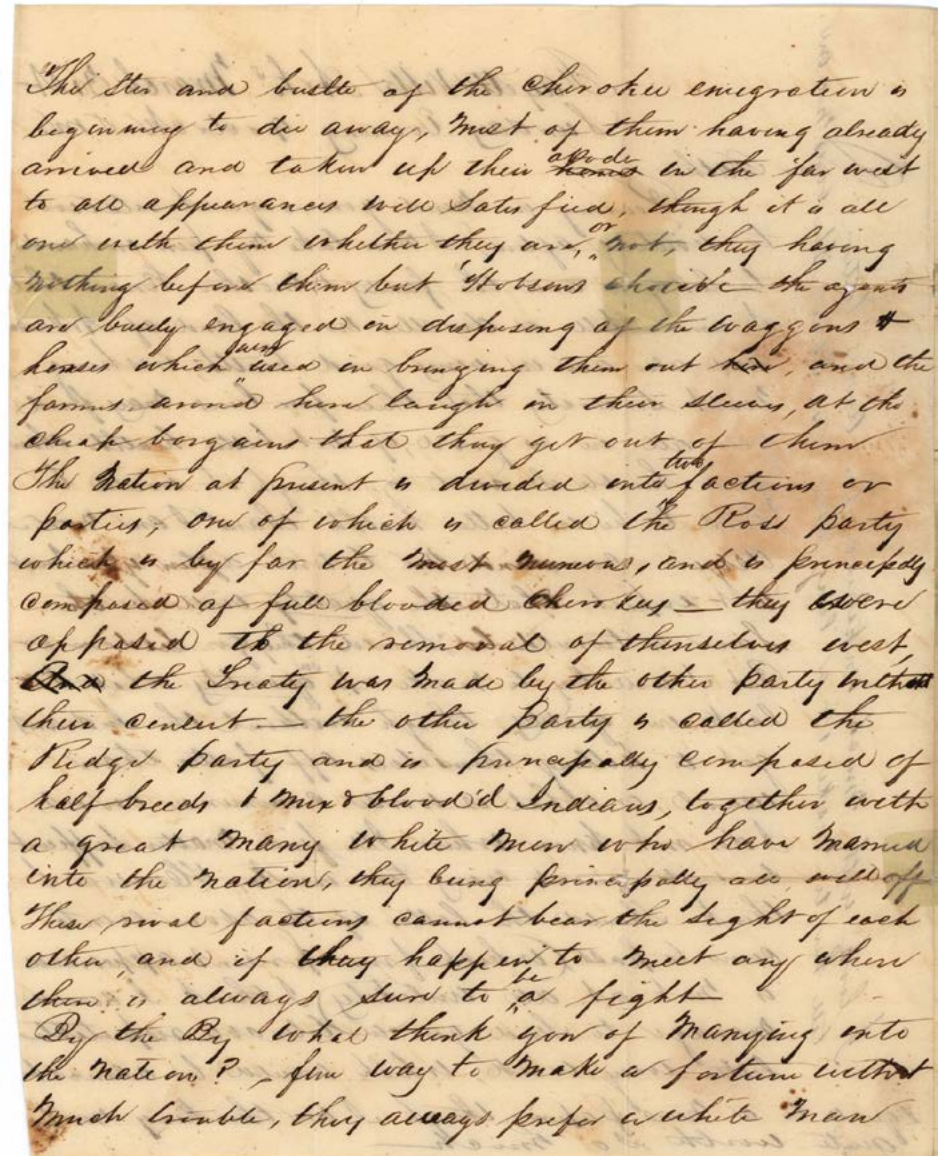 The stir and bustle of the Cherokee emigration is
beginning to die away, Most of them having already
arrived and taken up their abode homes in the far west
to all appearances well Satisfied, though it is all
one with them whether they are, or not, they having
nothing before them but 'Hobsons choice' the agents
are busily engaged in disposing of the waggons &
horses which were used in bringing them out here, and the
farms around here laugh in their sleeves, at the
cheap bargains that they get out of them
The Nation at present is divided into two factions or
parties, one of which is called the Ross party
which is by far the Most Numerous, and is principally
composed of full blooded Cherokees — they were
opposed to the removal of themselves west,
And the Treaty was Made by the other party without
their consent — the other Party is called the
Ridge Party and is principally composed of
half breeds & Mixd blood'd Indians, together with
a great Many White Men who have Married
into the Nation, they being principally all well off
These rival factions cannot bear the Sight of each
other, and if they happen to Meet any where
there is always sure to be a fight
By the By what think you of Marrying into
the Nation? – fine way to Make a fortune without
Much trouble, they always prefer a white Man